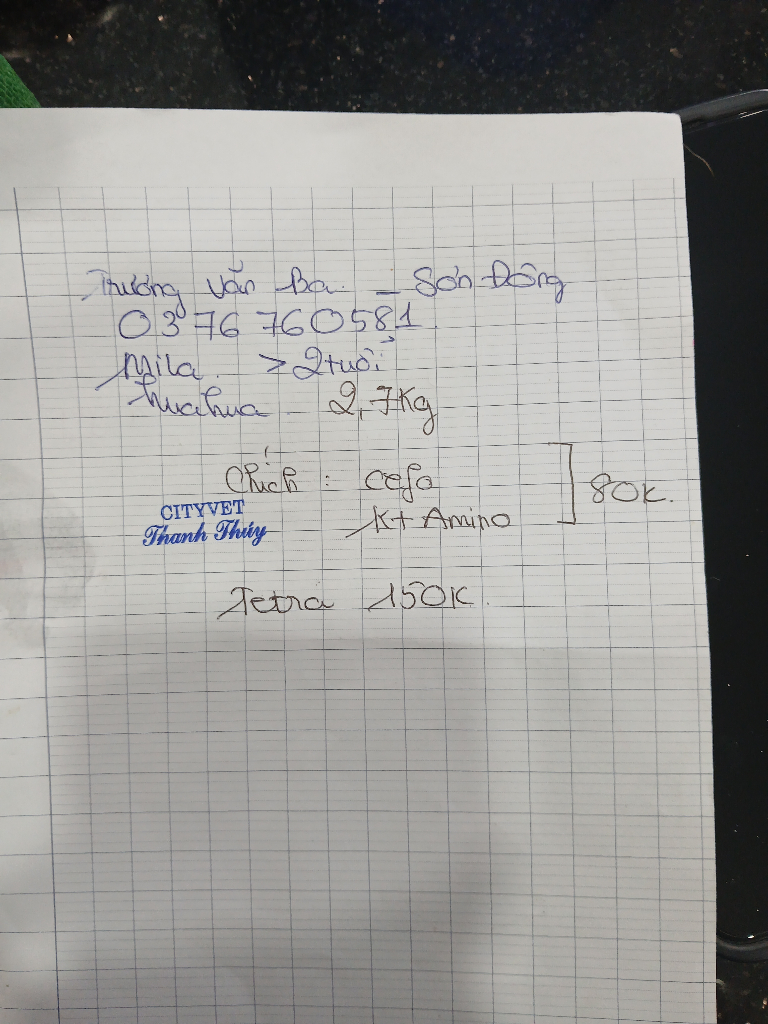 Trương Văn Ba. - Sơn Đông
0376 760581.
Mila. > 2 tuổi
huahua 2,7Kg
Chích : cefo
K+ Amino
80K.
CITYVET
Thanh Thúy
Tetra 150K.